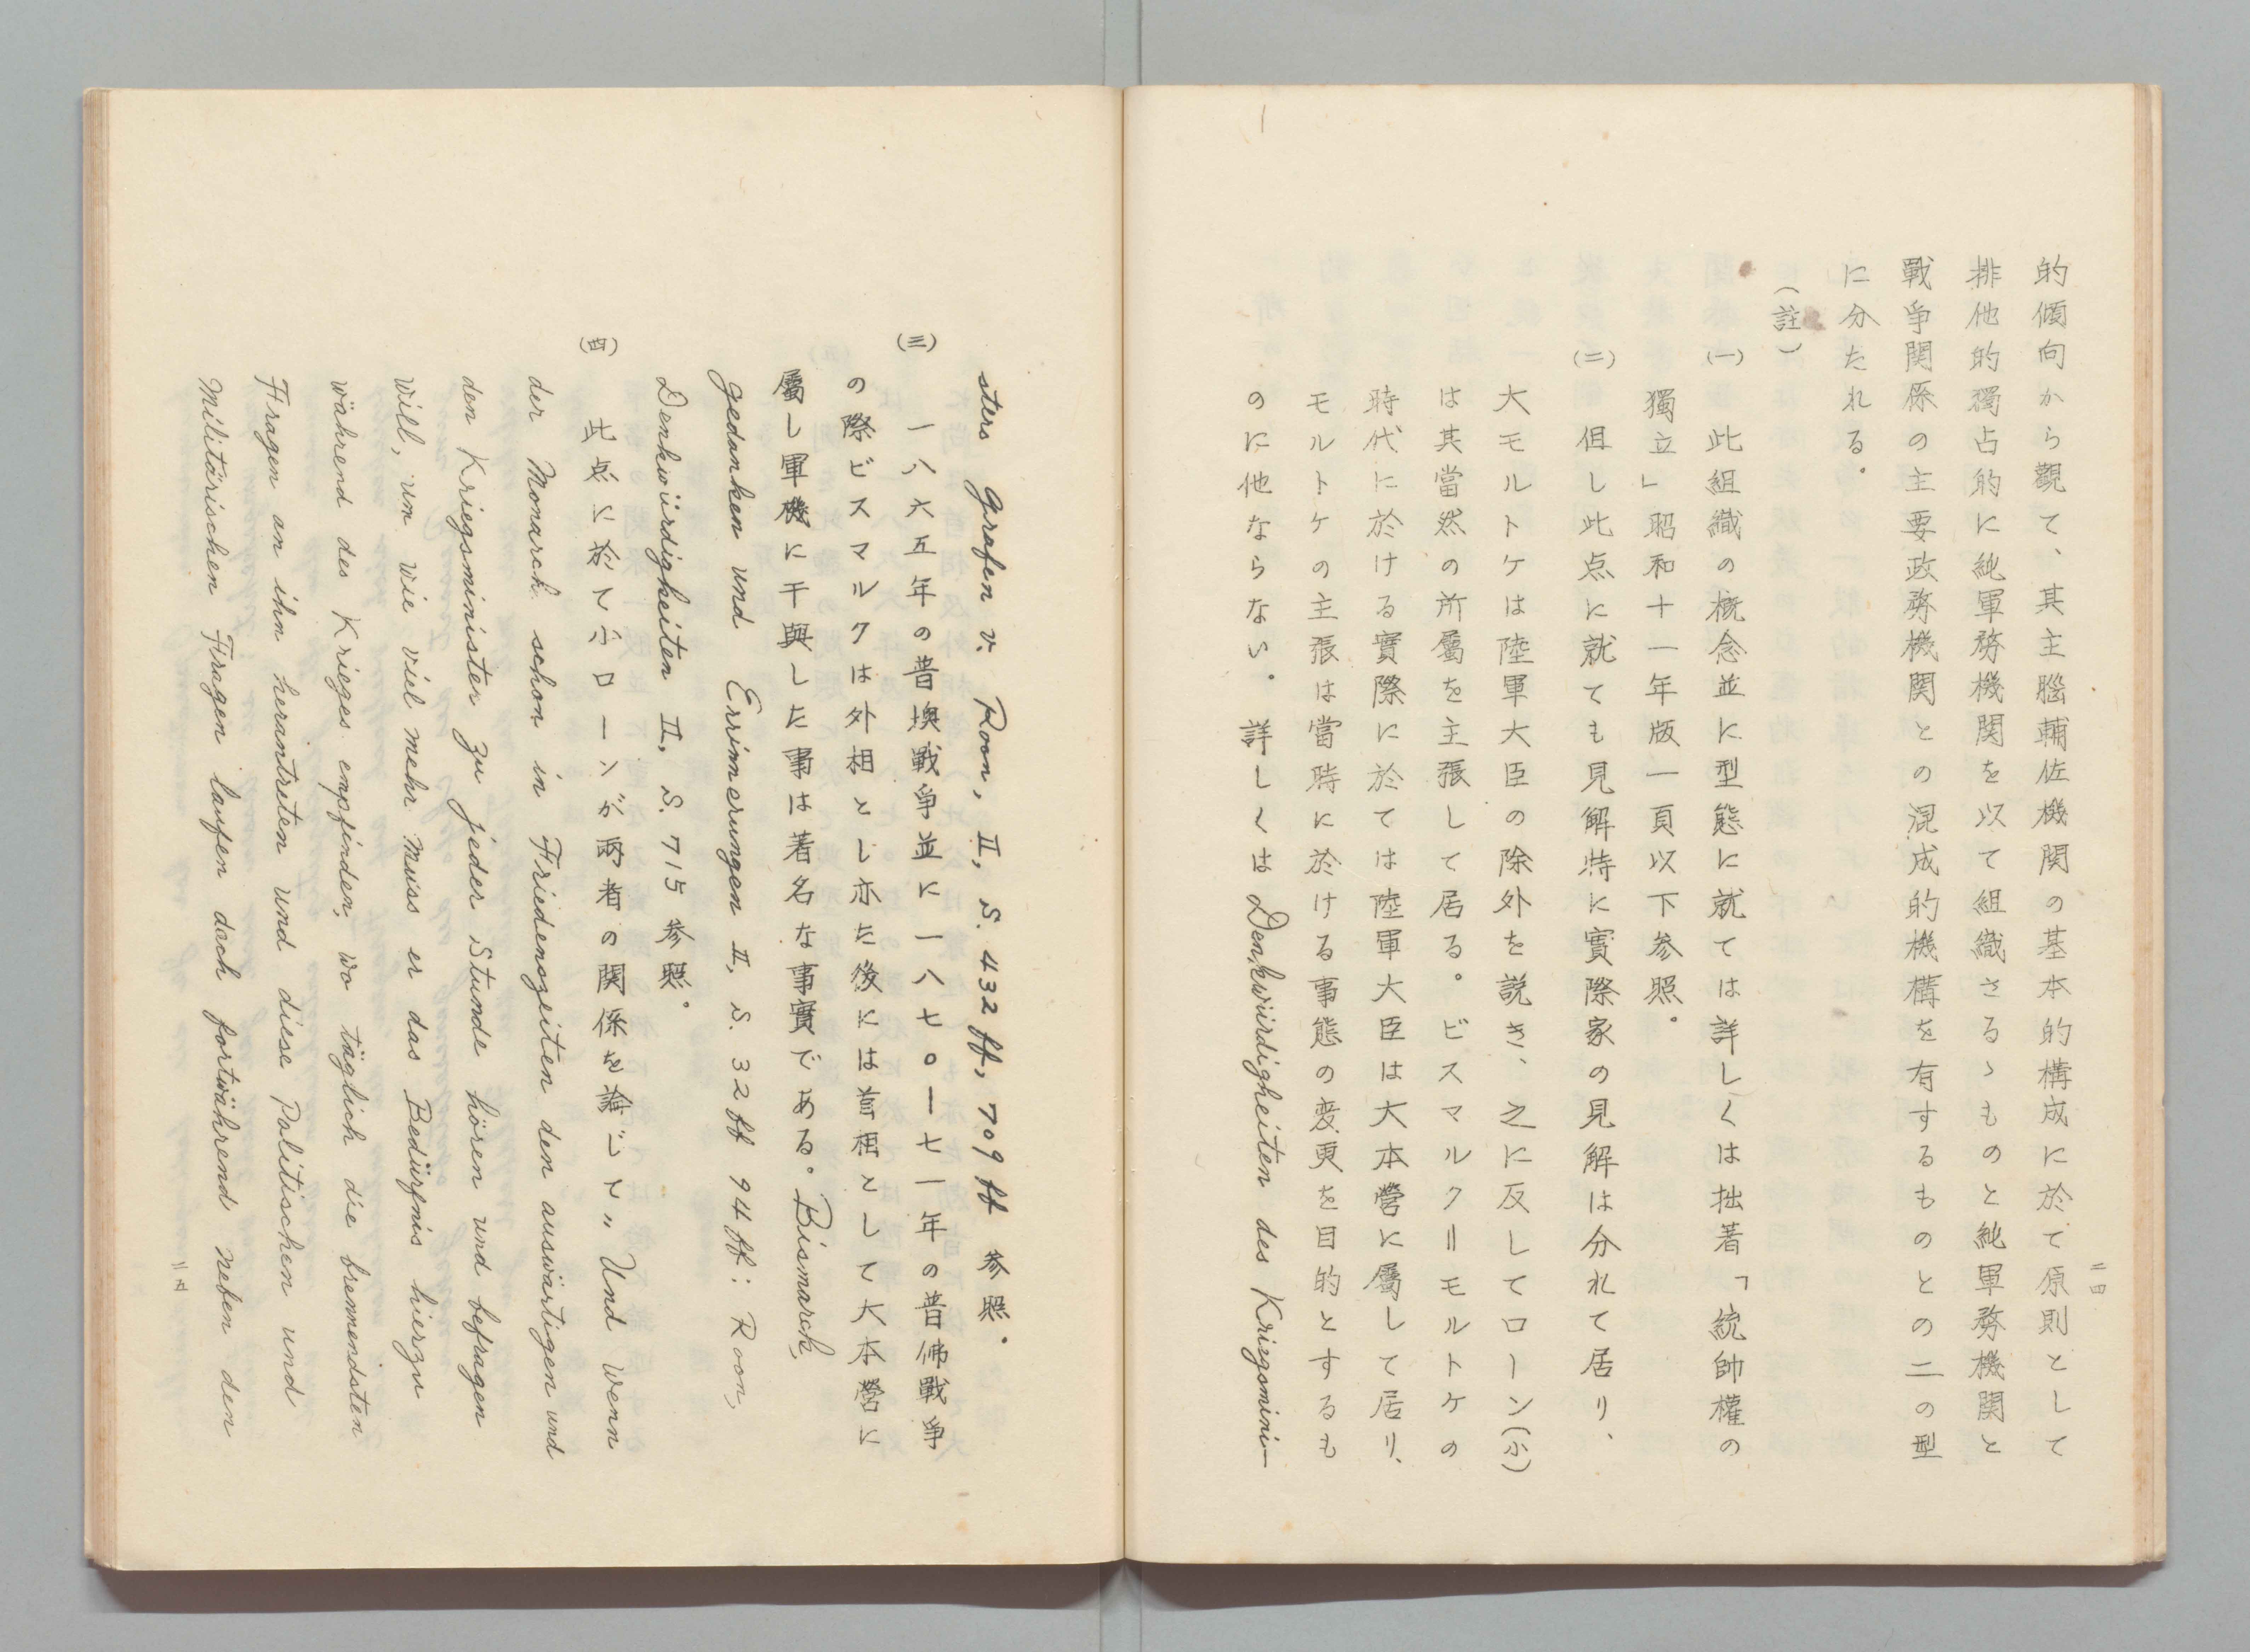 二四
的傾向から觀て、其主腦輔佐機関の基本的構成に於て原則として
排他的獨占的に純軍務機関を以て組織さるゝものと純軍務機関と
戰争関係の主要政務機関との混成的機構を有するものとの二の型
に分たれる。
（註）
(一) 此組織の概念並に型態に就ては詳しくは拙著「統帥權の
獨立」昭和十一年版一頁以下参照。
(二) 但し此点に就ても見解特に實際家の見解は分れて居り、
大モルトケは陸軍大臣の除外を説き、之に反してローン(小)
は其當然の所屬を主張して居る。ビスマルク＝モルトケの
時代に於ける實際に於ては陸軍大臣は大本營に屬して居り、
モルトケの主張は當時に於ける事態の変更を目的とするも
のに他ならない。詳しくは Denkwürdigkeiten des Kriegsmini-
sters Grafen v. Roon, II, S. 432 ff, 709 ff 参照。
(三) 一八六五年の普墺戰争並に一八七〇—七一年の普佛戰争
の際ビスマルクは外相とし亦た後には首相として大本營に
屬し軍機に干與した事は著名な事實である。Bismarck,
Gedanken und Errinnerungen II, S. 32 ff 94 ff: Roon,
Denkwürdigkeiten II, S. 715 参照。
(四) 此点に於て小ローンが兩者の関係を論じて〃Und wenn
der Monarch schon in Friedenszeiten den auswärtigen und
den Kriegsminister zu jeder Stunde hören und befragen
will, um wie viel mehr muss er das Bedürfnis hierzu
während des Krieges empfinden, wo täglich die brennendsten
Fragen an ihn herantreten und diese Politischen und
Militärischen Fragen laufen doch fortwährend neben den
二五